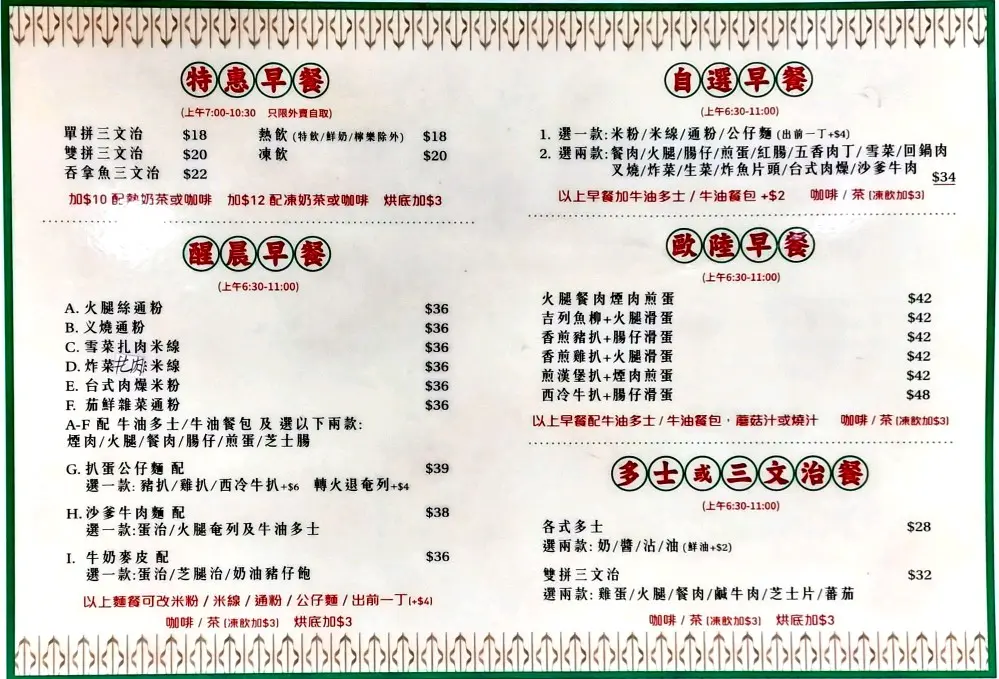 特惠早餐
(上午7:00-10:30 只限外賣自取)
單拼三文治 $18
雙拼三文治 $20
吞拿魚三文治 $22
熱飲 (特飲/鮮奶/檸樂除外) $18
凍飲 $20
加$10 配熱奶茶或咖啡 加$12 配凍奶茶或咖啡 烘底加$3
醒晨早餐
(上午6:30-11:00)
A. 火腿絲通粉 $36
B. 义燒通粉 $36
C. 雪菜扎肉米線 $36
D. 炸菜扎肉米線 $36
E. 台式肉燥米粉 $36
F. 茄鮮雜菜通粉 $36
A-F 配 牛油多士/牛油餐包 及 選以下兩款:
煙肉/火腿/餐肉/腸仔/煎蛋/芝士腸
G. 扒蛋公仔麵 配 $39
選一款: 豬扒/雞扒/西冷牛扒+$6 轉火退奄列+$4
H. 沙爹牛肉麵 配 $38
選一款:蛋治/火腿奄列及牛油多士
I. 牛奶麥皮 配 $36
選一款:蛋治/芝腿治/奶油豬仔飽
以上麵餐可改米粉 / 米線 / 通粉 / 公仔麵 / 出前一丁(+$4)
咖啡 / 茶 (凍飲加$3) 烘底加$3
自選早餐
(上午6:30-11:00)
1. 選一款:米粉/米線/通粉/公仔麵 (出前一丁+$4)
2. 選兩款:餐肉/火腿/腸仔/煎蛋/紅腸/五香肉丁/雪菜/回鍋肉
叉燒/炸菜/生菜/炸魚片頭/台式肉燥/沙爹牛肉 $34
以上早餐加牛油多士 / 牛油餐包 +$2 咖啡 / 茶 (凍飲加$3)
歐陸早餐
(上午6:30-11:00)
火腿餐肉煙肉煎蛋 $42
吉列魚柳+火腿滑蛋 $42
香煎豬扒+腸仔滑蛋 $42
香煎雞扒+火腿滑蛋 $42
煎漢堡扒+煙肉煎蛋 $42
西冷牛扒+腸仔滑蛋 $48
以上早餐配牛油多士 / 牛油餐包，蘑菇汁或燒汁 咖啡 / 茶 (凍飲加$3)
多士或三文治餐
(上午6:30-11:00)
各式多士 $28
選兩款: 奶/醬/沾/油 (鮮油+$2)
雙拼三文治 $32
選兩款: 雞蛋/火腿/餐肉/鹹牛肉/芝士片/蕃茄
咖啡 / 茶 (凍飲加$3) 烘底加$3